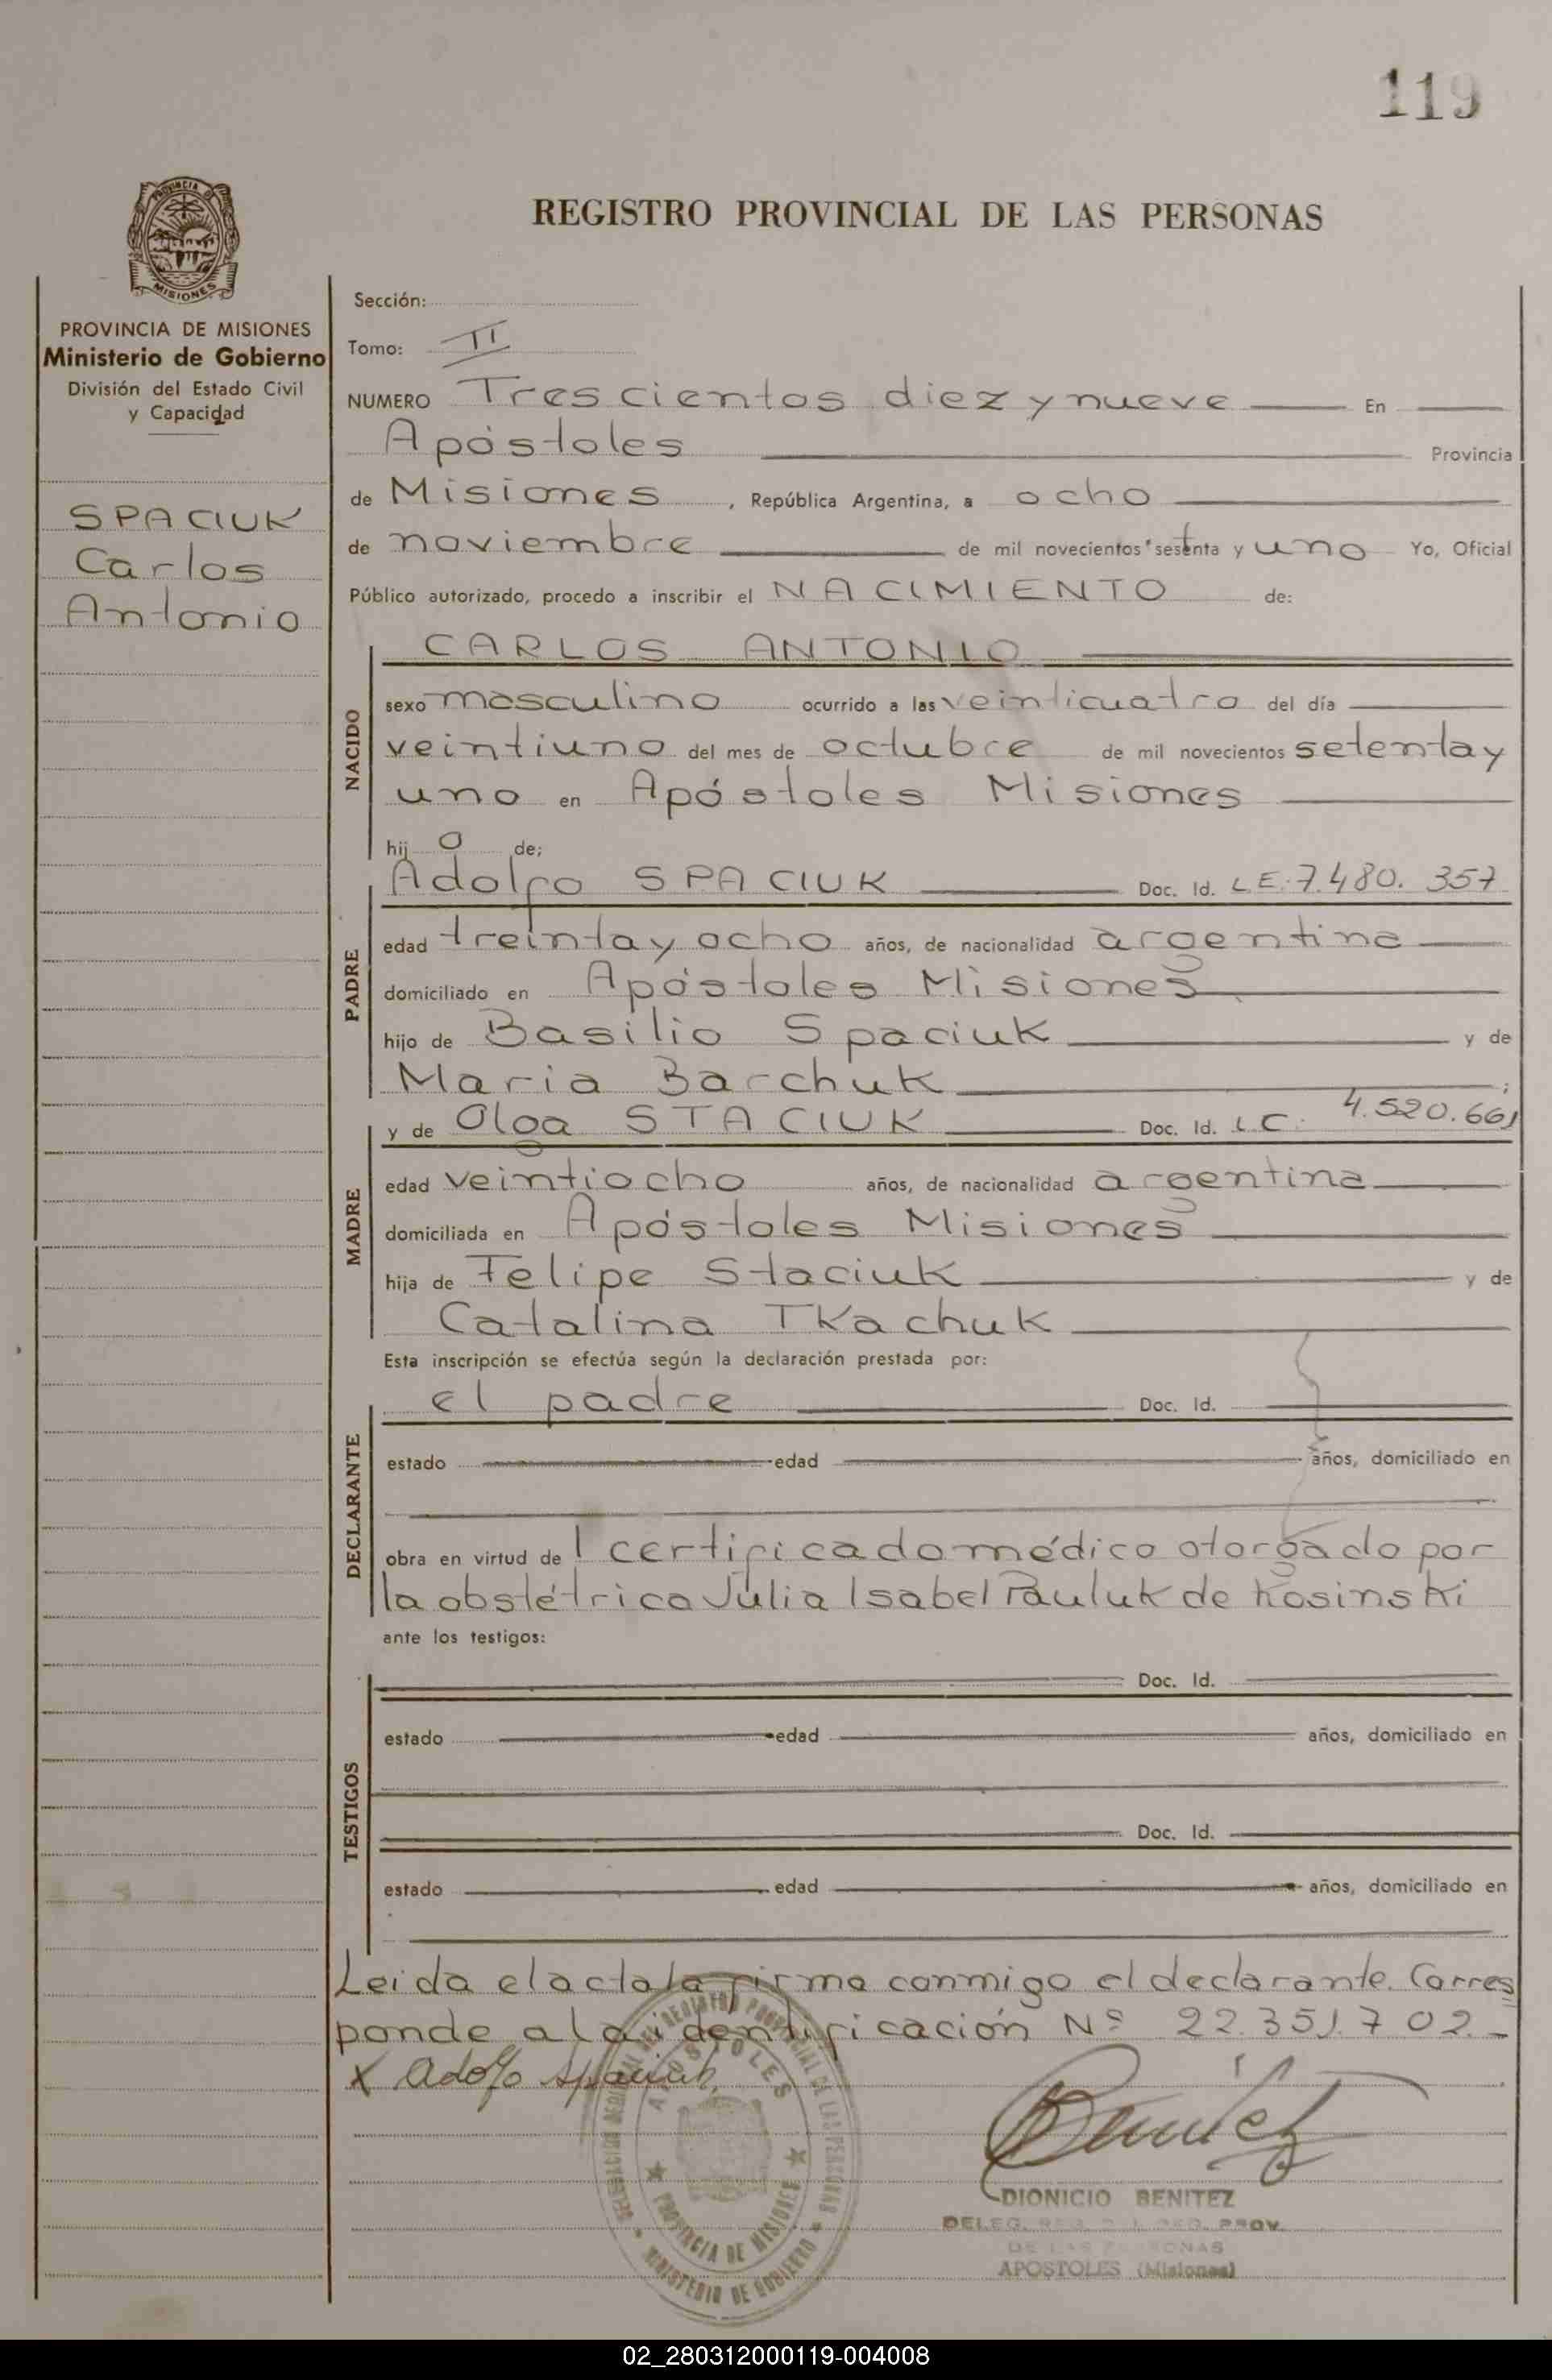 119
PROVINCIA DE
MISIONES
PROVINCIA DE MISIONES
Ministerio de Gobierno
División del Estado Civil
y Capacidad
SPACIUK
Carlos
Antonio
REGISTRO PROVINCIAL DE LAS PERSONAS
Sección:
Tomo: II
NUMERO Trescientos diez y nueve En
Apóstoles Provincia
de Misiones, República Argentina, a ocho
de noviembre de mil novecientos setenta y uno Yo, Oficial
Público autorizado, procedo a inscribir el NACIMIENTO de:
NACIDO
CARLOS ANTONIO
sexo masculino ocurrido a las veinticuatro del día
veintiuno del mes de octubre de mil novecientos setenta y
uno en Apóstoles Misiones
hij o de;
PADRE
Adolfo SPACIUK Doc. Id. L.E. 7.480.357
edad treinta y ocho años, de nacionalidad argentina
domiciliado en Apóstoles Misiones
hijo de Basilio Spaciuk y de
Maria Barchuk ;
MADRE
y de Olga STACIUK Doc. Id. L C. 4.520.661
edad veintiocho años, de nacionalidad argentina
domiciliada en Apóstoles Misiones
hija de Felipe Staciuk y de
Catalina Tkachuk
Esta inscripción se efectúa según la declaración prestada por:
DECLARANTE
el padre Doc. Id.
estado edad años, domiciliado en
obra en virtud de 1 certificado médico otorgado por
la obstétrica Julia Isabel Pauluk de Kosinski
ante los testigos:
TESTIGOS
Doc. Id.
estado edad años, domiciliado en
Doc. Id.
estado edad años, domiciliado en
Leida el acta la firma conmigo el declarante. Corres
ponde a la identificación Nº 22.351.702.-
X Adolfo Spaciuk
APOSTOLES
PROVINCIA DE MISIONES
MINISTERIO DE GOBIERNO
Benitez
DIONICIO BENITEZ
DELEG. REG. PROV.
DE LAS PERSONAS
APOSTOLES (Misiones)
02_280312000119-004008